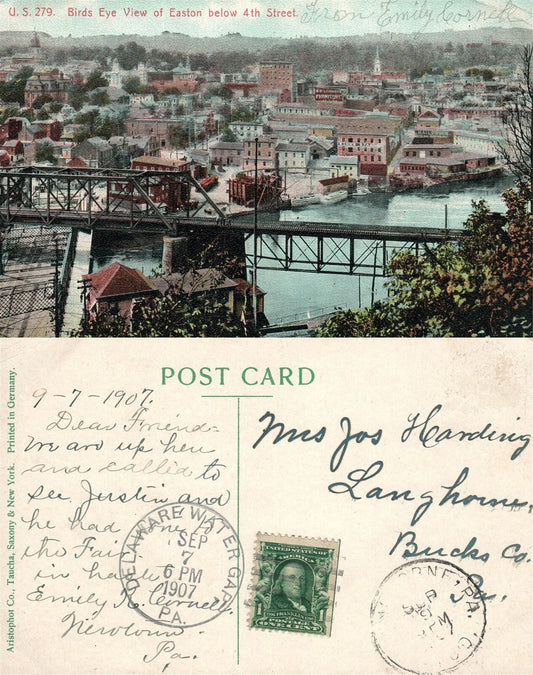 U.S. 279. Birds Eye View of Easton below 4th Street.
From Emily Cornell
FURNITURE
POST CARD
Aristophot Co., Taucha, Saxony & New York. Printed in Germany.
9-7-1907.
Dear Friend-
We are up here
and called to
see Justin and
he had gone to
the Fair.
in haste
Emily K. Cornell
Newtown
Pa.
DELAWARE WATER GAP
SEP
7
6 PM
1907
PA.
UNITED STATES POSTAGE
FRANKLIN
1
POSTAGE ONE CENT
Mrs Jos Harding
Langhorne,
Bucks Co.
Pa.
LANGHORNE, PA.
SEP
PM